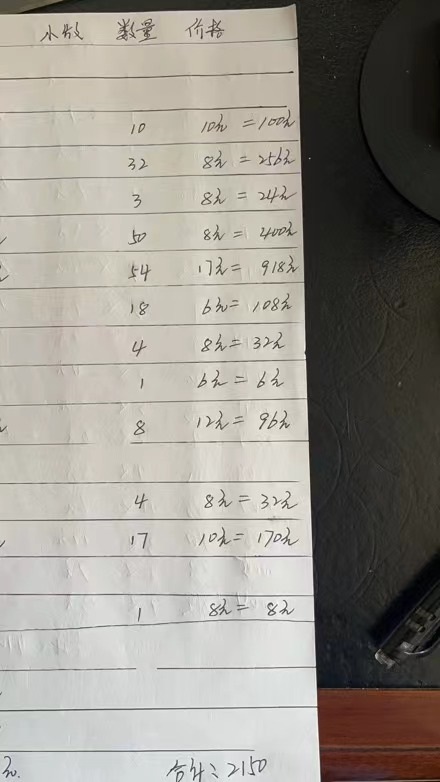 数量 价格
10 10元 = 100元
32 8元 = 256元
3 8元 = 24元
50 8元 = 400元
54 17元 = 918元
18 6元 = 108元
4 8元 = 32元
1 6元 = 6元
8 12元 = 96元
4 8元 = 32元
17 10元 = 170元
1 8元 = 8元
元. 合计: 2150